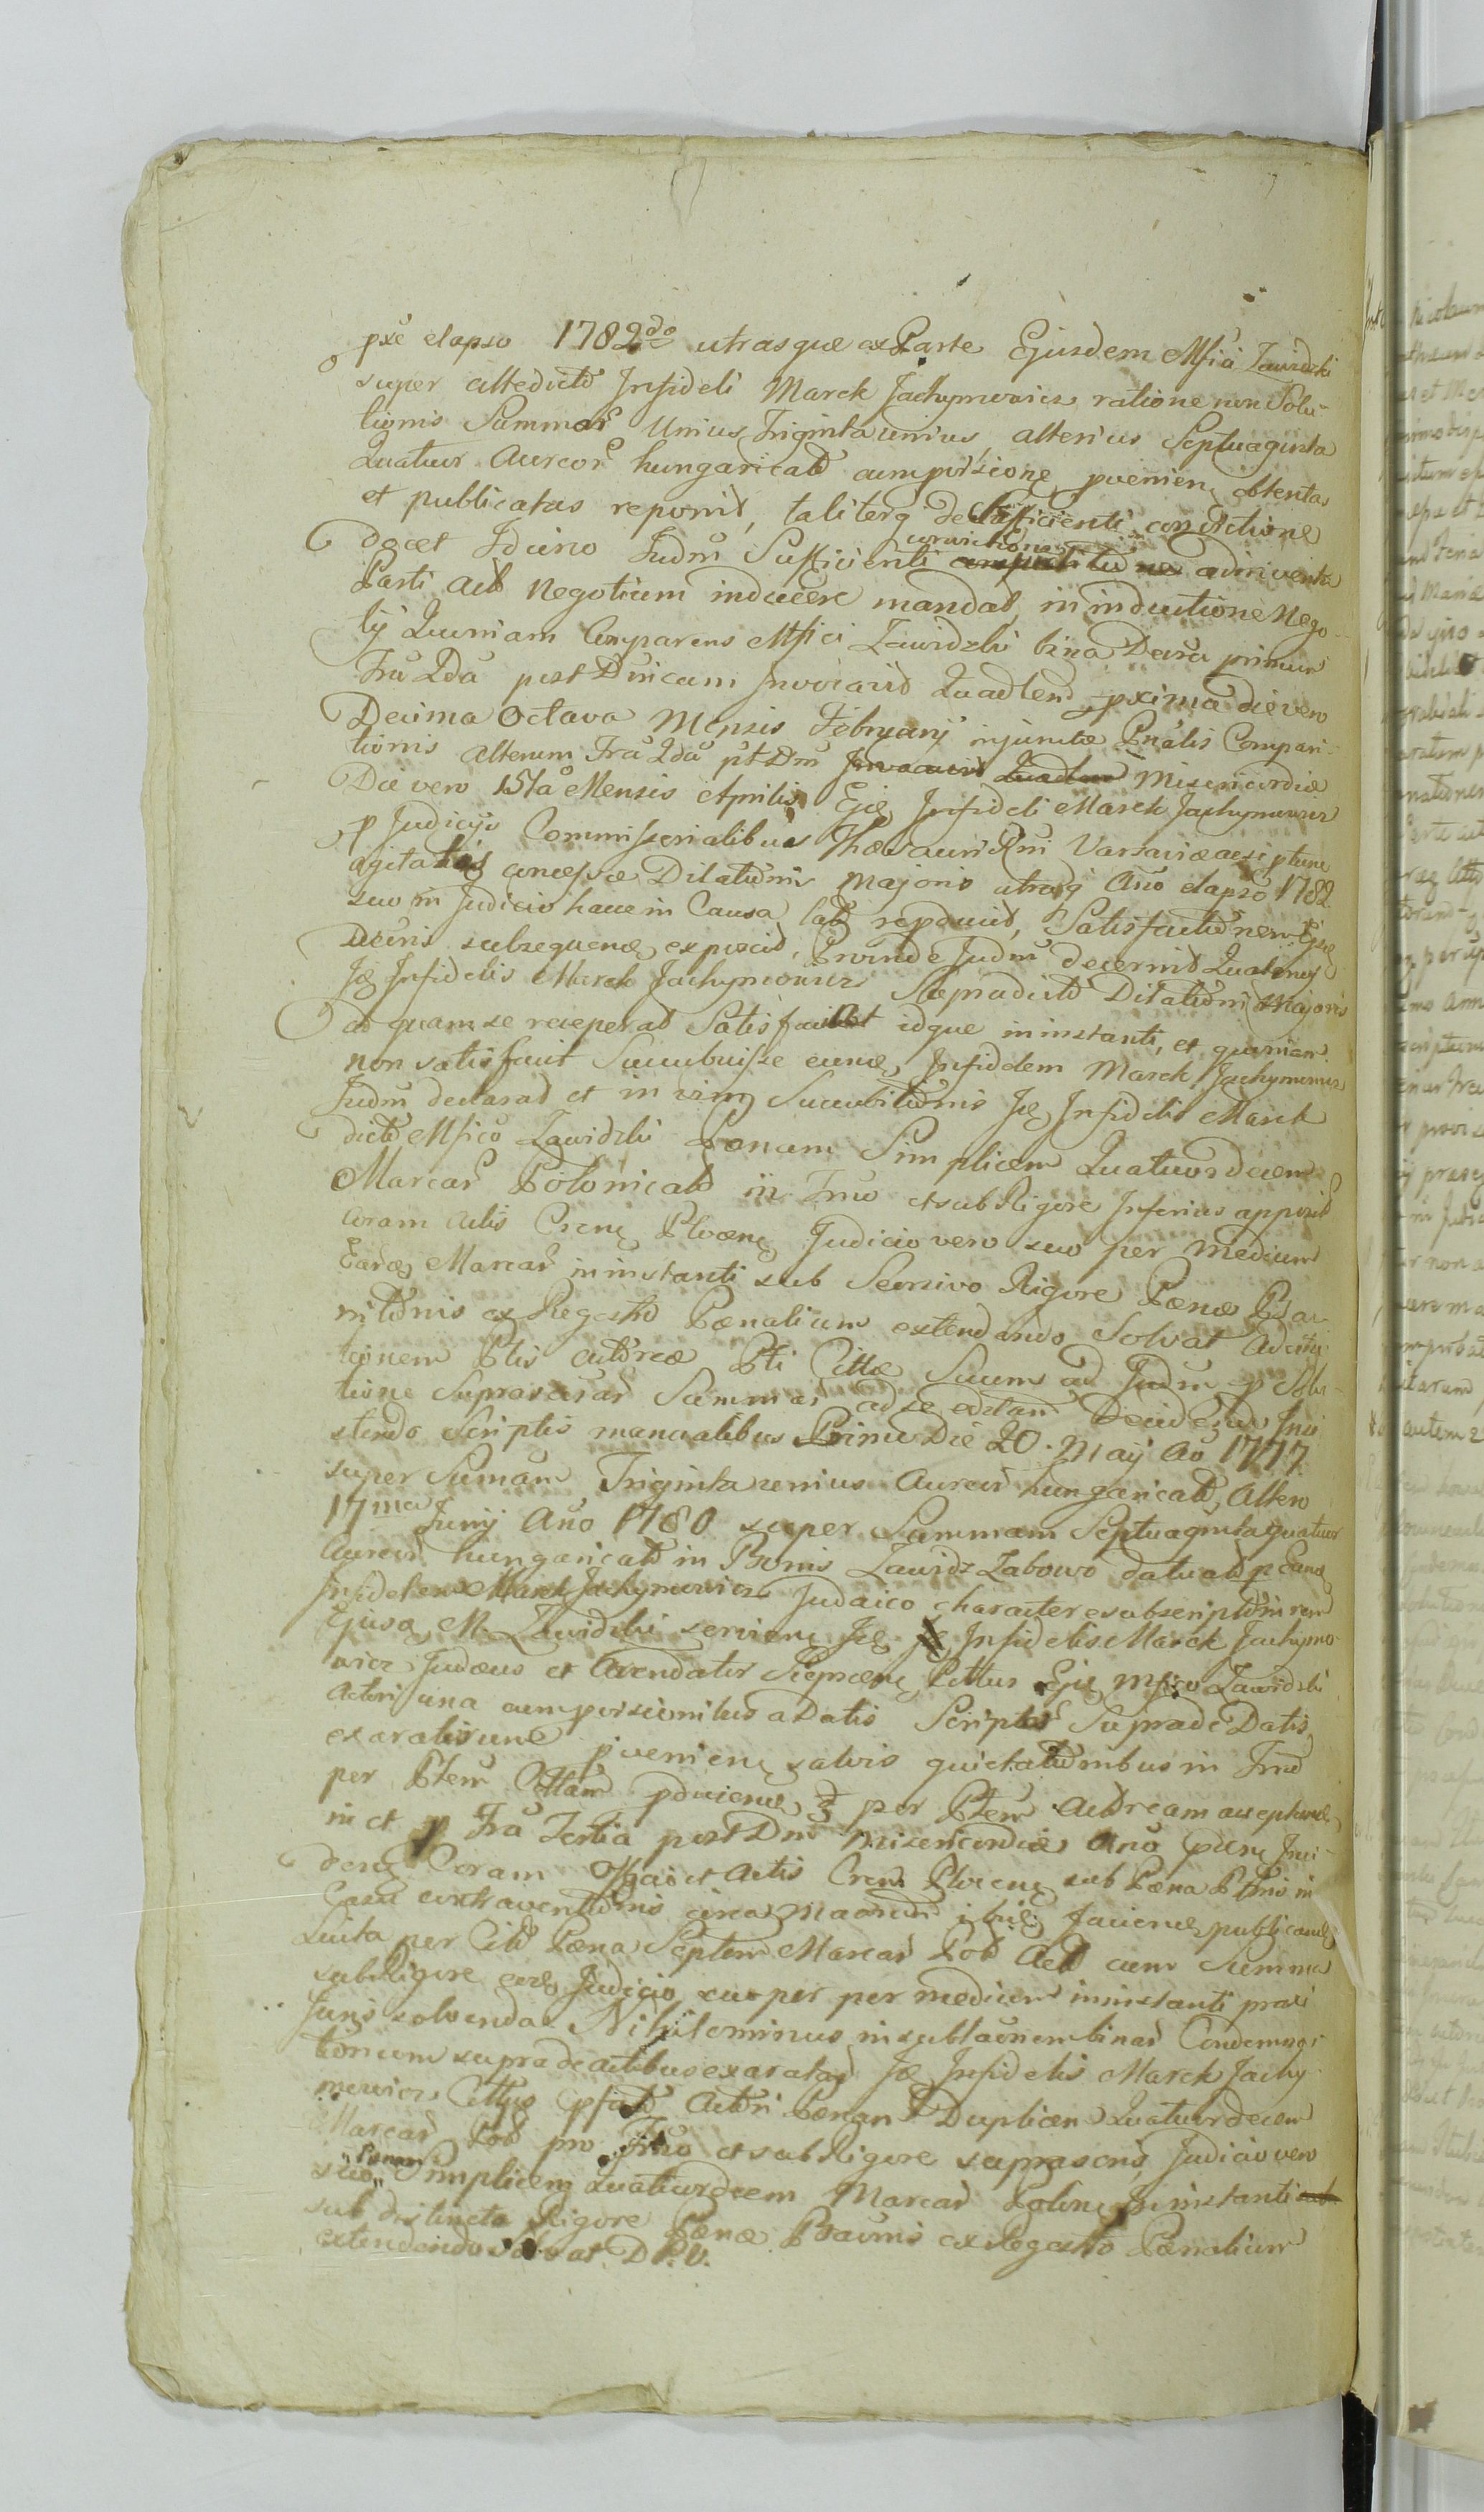 pxe elapso 1782do utrasque ex Parte Ejusdem Mfici Zawidzki
super attedicto Infideli Marek Jachymowicz ratione non Solu-
tionis Summar Unius Triginta unius, alterius Septuaginta
Quatuor Aureor hungaricalt cum provisione provenien obtentas
et publicatas reponit, taliterq de Sufficienti convictione
docet Idcirco Judm Sufficienti convictione adinventa
Parti Act Negotium inducere mandat, in inductione Nego-
tij Quoniam Comparens Mfici Zawidzki bina Decra primum
Fra 2da post Dnicam Invocavit Quadlem pxima die vero
Decima Octava Mensis Februarij injunctae Pnalis Compari-
tionis alterum Fra 2da pt Dm Misericordiae
Die vero 15ta Mensis Aprilis Ejae Infideli Marek Jachymowicz
p Judicijs Commissorialibus Thesauri Rni Varsaviae
agitatis concessae Dilationis Majoris utrasq Ano elapso 1782
suo in Judicio hacce in Causa lat reponit, Satisfactionem Ejae
Decris subsequenae exposcit, Proinde Judm decernit Quatenus
Ije Infidelis Marek Jachymowicz Supradicto Dilationi Majoris
ad quam se receperat Satisfaciat idque in instanti, et quoniam
non satisfecit Succubuisse eune Infidelem Marek Jachymowicz
Judm declarat et in vim Succubitionis Ije Infidelis Marek
dicto Mfico Zawidzki Paenam Simplicem Quatuordecem
Marcar Polonicalt in Trno et sub Rigore Inferius apposit
Coram Actis Crens Plocens Judicio vero suo per Medium
Earde Marcar in instanti sub Seorsivo Rigore Paenae Bani-
tionis ex Regestro Paenalium extendendo Solvat Ad cita-
tionem Ptis Actoreae Pti Cittae Suum ad Judm p Solu-
tione Suprascriar Summar ad se editam Decidendo Insi-
stendo Scriptis manualibus Primo Die 20 Maij Ao 1777
super Summam Triginta unius Aureor hungaricalt, Altero
17ma Junij Ano 1780 super Summam Septuaginta quatuor
Aureor hungaricalt in Bonis Zawidz Zabowo datualt p Eunde
Infidelem Marek Jachymowicz Judaico charactere subscriptum rem
Ejusd M. Zawidzki serviens Ije Infidelis Marek Jachymo-
wicz Judaeus et Arendator Siepcens Cittus Ejae Mfico Zawidzki
Actori una cum provisionibus a Datis Scriptor Supra de Datis
exaratis une provenien salvis quietationibus in Trno
per Ptem Cittam pducienae & per Ptem Actoream acceptandae
in et p Fra Tertia post Dm Misericordiae Ano pnti Inci-
dens Coram Offcio et Actis Crens Plocens sub Paena Ptinis in
Casu contraventionis circa Mandm ibidem facienae publicandae
Luita per Citt Paena Septem Marcar Pol Act cum Summa
sub Rigore eode Judicio super per medium in instanti praxi
Juris solvenda. Nihilominus in sublaonem binar Condemna-
tionum supra de actibus exaratar Ije Infidelis Marek Jachy-
mowicz Cittus pfato Actori Paenam Duplicem Quatuordecem
Marcar Pol pro Trno et sub Rigore suprascris, Judicio vero
suo "Paenam" Simplicem Quatuordecem Marcar Polon In instanti
sub distincto Rigore Paenae Baonis ex Regestro Paenalium
extendendo Solvat D.P.V.